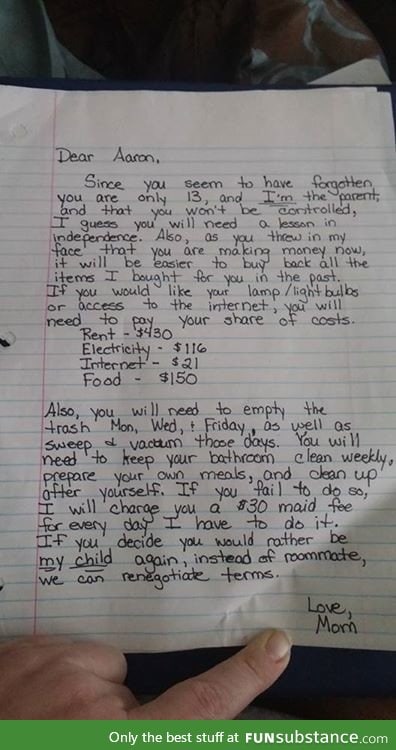 Dear Aaron,
Since you seem to have forgotten
you are only 13, and I'm the parent,
and that you won't be controlled,
I guess you will need a lesson in
independence. Also, as you threw in my
face that you are making money now,
it will be easier to buy back all the
items I bought for you in the past.
If you would like your lamp/lightbulbs
or access to the internet, you will
need to pay your share of costs.
Rent - $430
Electricity - $116
Internet - $21
Food - $150
Also, you will need to empty the
trash Mon, Wed, & Friday, as well as
sweep & vacuum those days. You will
need to keep your bathroom clean weekly,
prepare your own meals, and clean up
after yourself. If you fail to do so,
I will charge you a $30 maid fee
for every day I have to do it.
If you decide you would rather be
my child again, instead of roommate,
we can renegotiate terms.
Love,
Mom
Only the best stuff at FUNsubstance.com